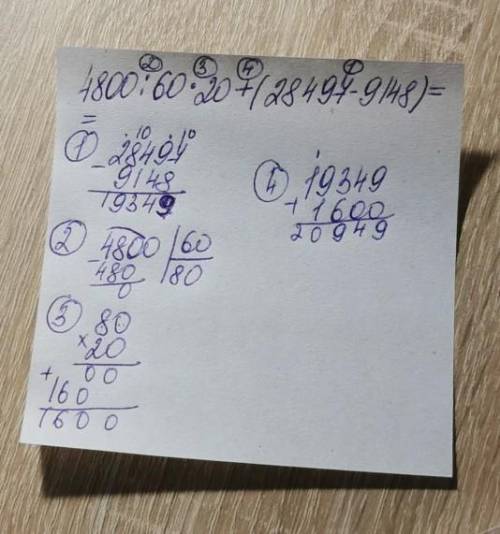 ② ③ ④ ①
4800:60·20+(28497-9148)=
=
① · 10 · 10
- 28497
9148
19349
② - 4800 | 60
480 | 80
0
③ 80
× 20
+ 00
160
1600
④ 1
19349
+ 1600
20949